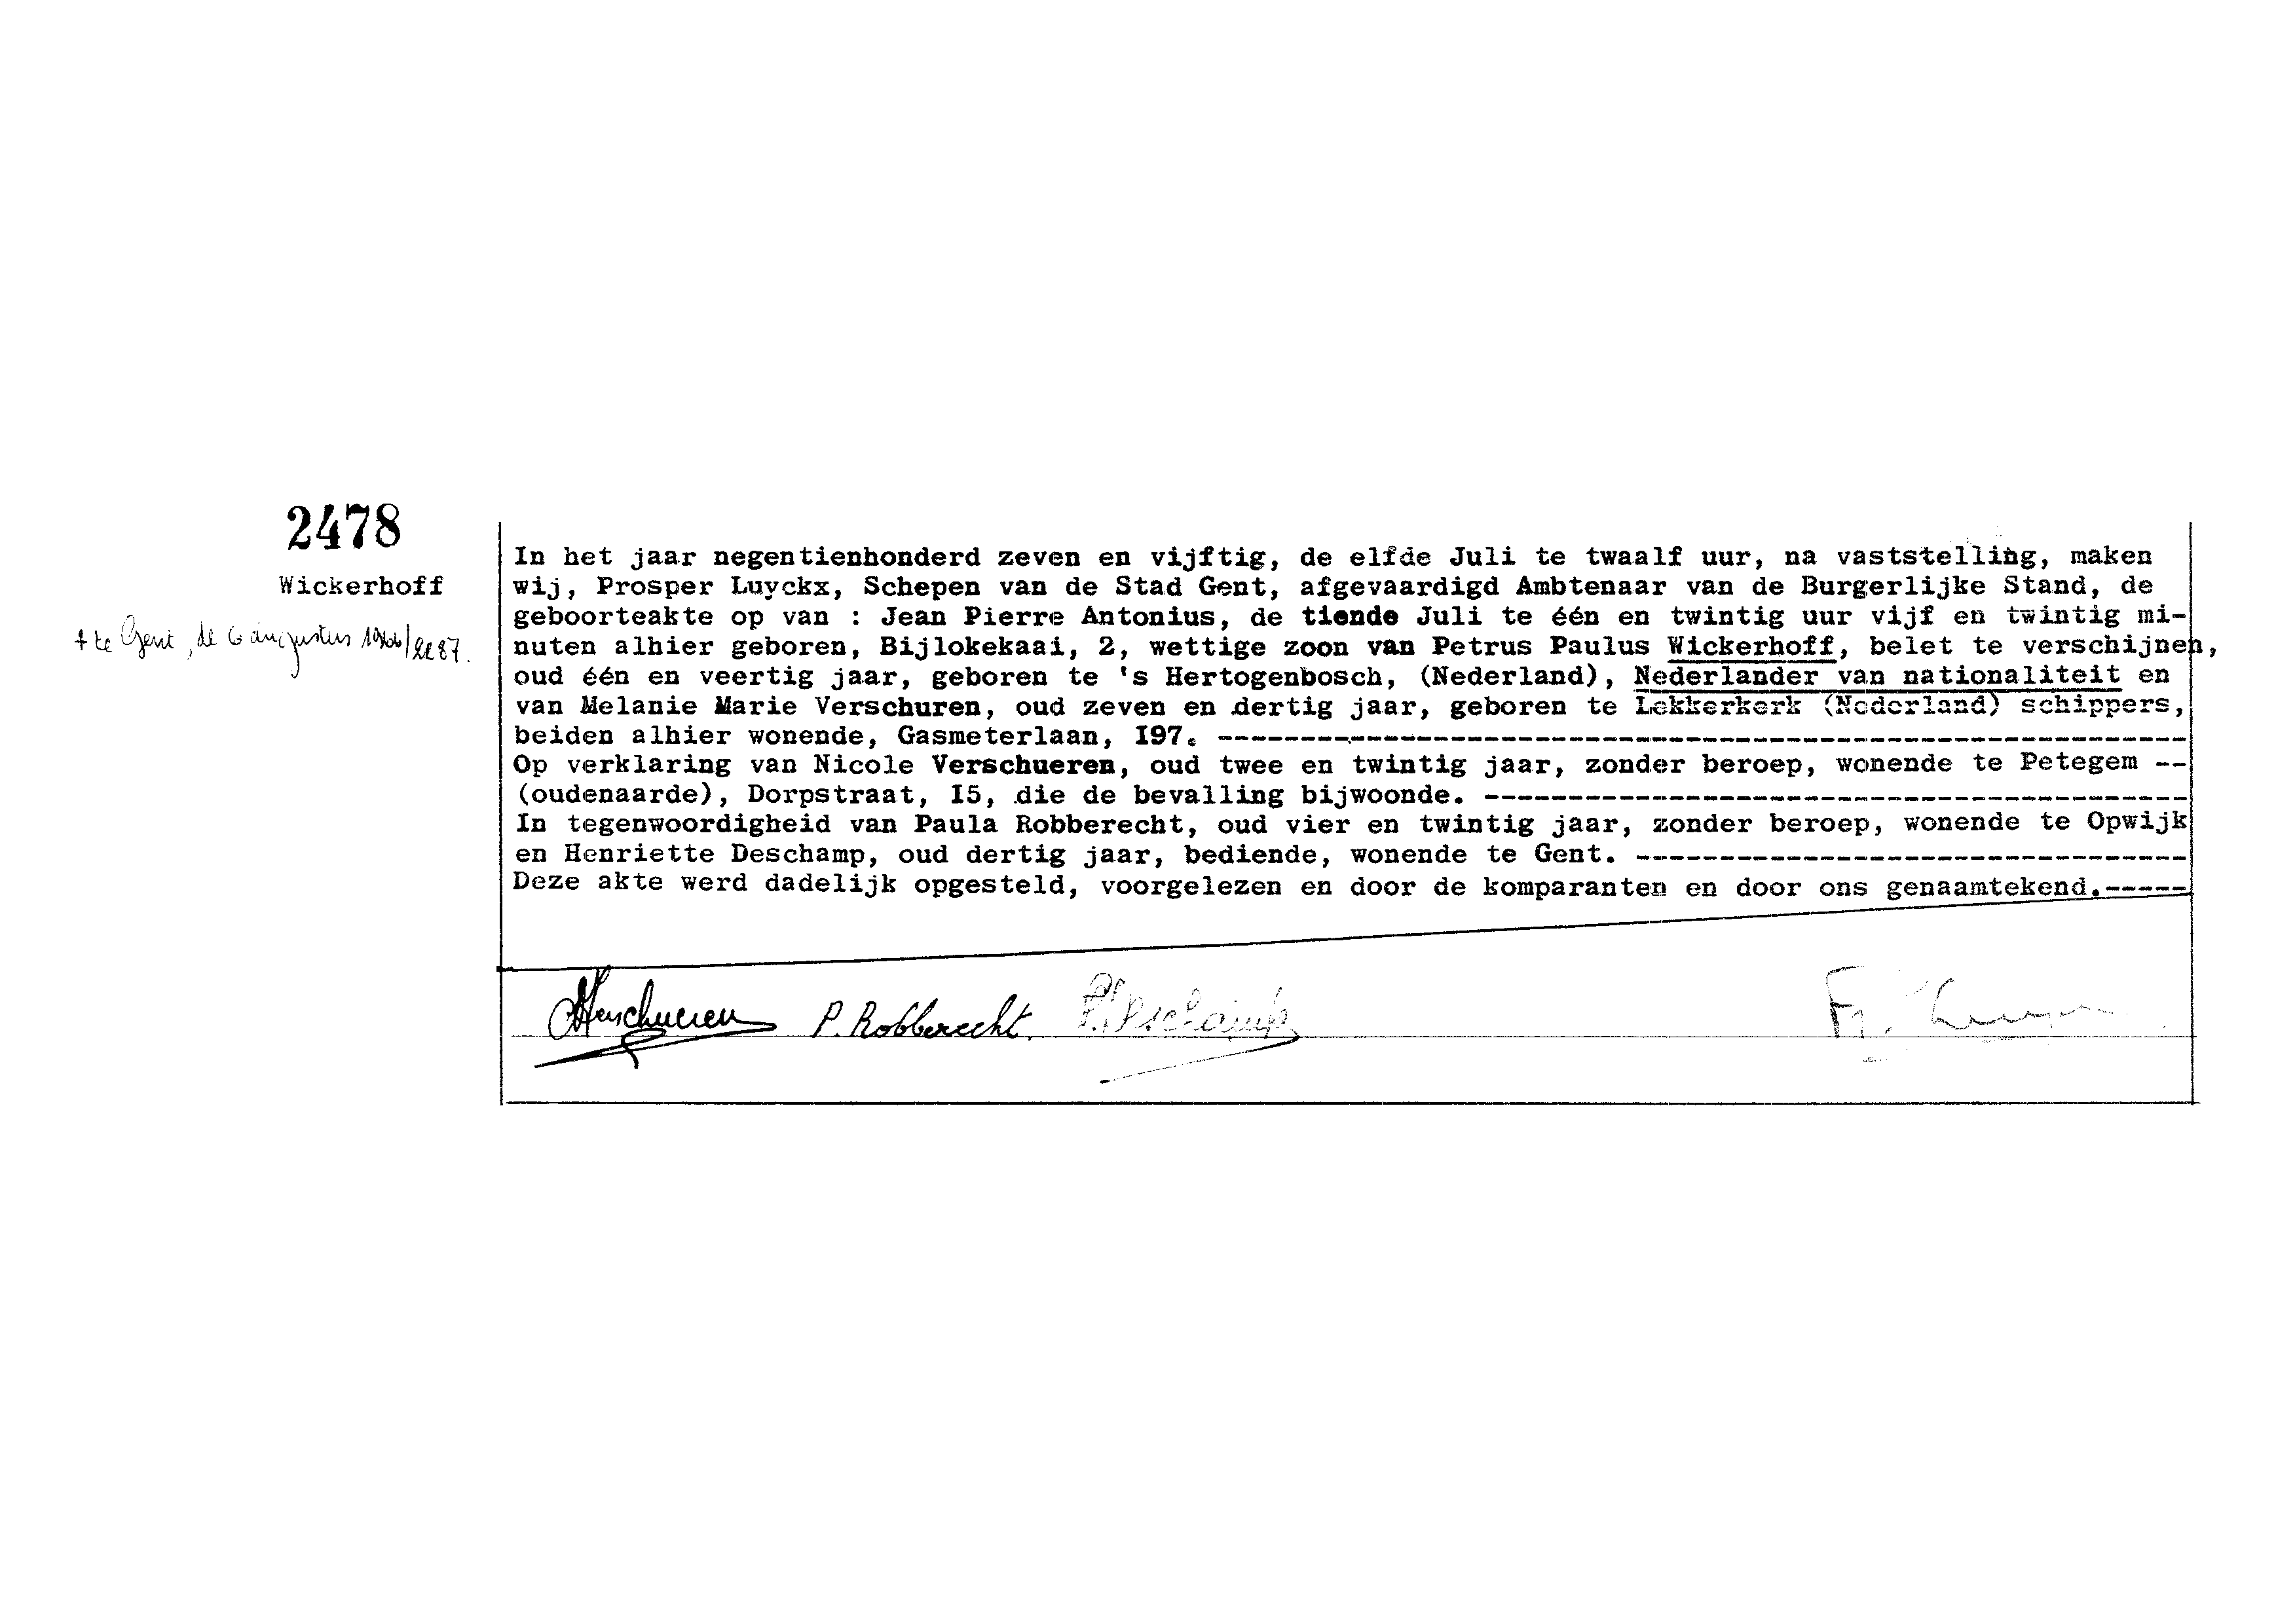 2478
Wickerhoff
+ te Gent, de 6 augustus
In het jaar negentienhonderd zeven en vijftig, de elfde Juli te twaalf uur, na vaststelling, maken
wij, Prosper Luyckx, Schepen van de Stad Gent, afgevaardigd Ambtenaar van de Burgerlijke Stand, de
geboorteakte op van : Jean Pierre Antonius, de tiende Juli te één en twintig uur vijf en twintig mi-
nuten alhier geboren, Bijlokekaai, 2, wettige zoon van Petrus Paulus Wickerhoff, belet te verschijnen,
oud één en veertig jaar, geboren te 's Hertogenbosch, (Nederland), Nederlander van nationaliteit en
van Melanie Marie Verschuren, oud zeven en dertig jaar, geboren te Lekkerkerk (Nederland) schippers,
beiden alhier wonende, Gasmeterlaan, I97. ----------
Op verklaring van Nicole Verschueren, oud twee en twintig jaar, zonder beroep, wonende te Petegem --
(oudenaarde), Dorpstraat, I5, die de bevalling bijwoonde. ----------
In tegenwoordigheid van Paula Robberecht, oud vier en twintig jaar, zonder beroep, wonende te Opwijk
en Henriette Deschamp, oud dertig jaar, bediende, wonende te Gent. ----------
Deze akte werd dadelijk opgesteld, voorgelezen en door de komparanten en door ons genaamtekend.-----
Verschueren P. Robberecht